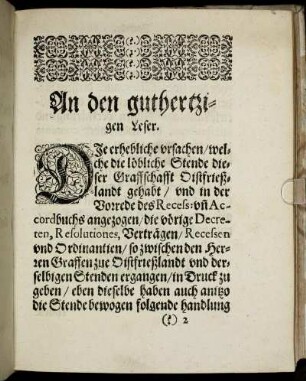 An den guthertzi-
gen Leser.
DIe erhebliche vrsachen/wel-
che die löbliche Stende die-
ser Graffschafft Ostfrieß-
landt gehabt / vnd in der
Vorrede des Recess: vñ Ac-
cordbuchs angezogen/die vörige Decre-
ten, Resolutiones, Verträgen/Recessen
vnd Ordinantien / so zwischen den Her-
ren Graffen zue Ostfrießlandt vnd der-
selbigen Stenden ergangen/in Druck zu
geben / eben dieselbe haben auch anitzo
die Stende bewogen folgende handlung
(⁝) 2